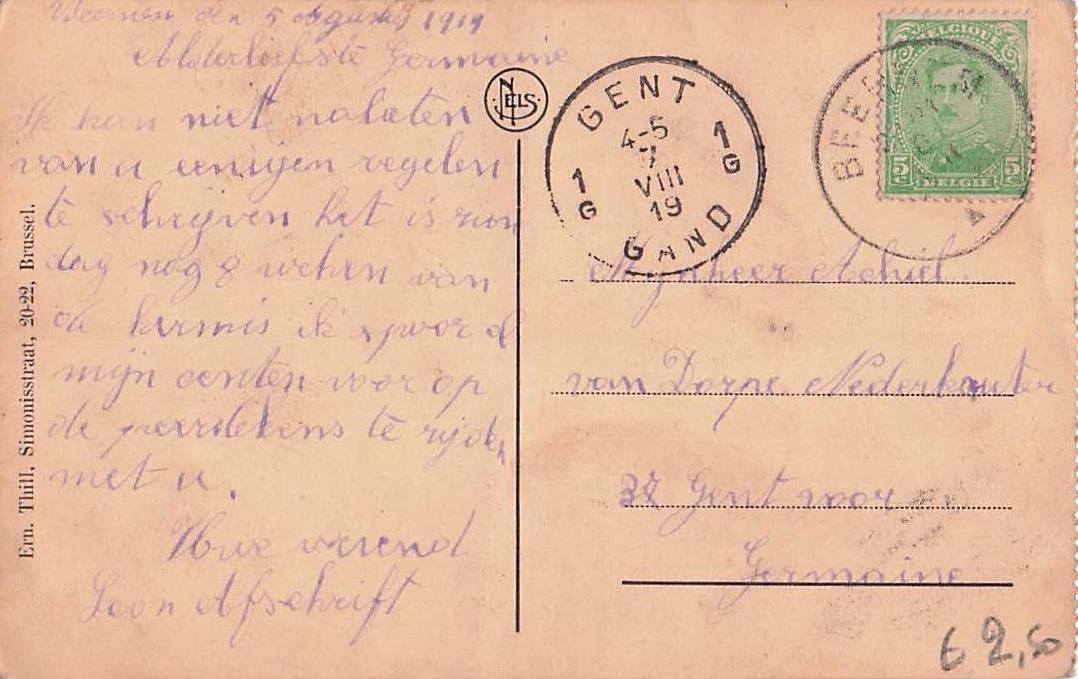 den 5 1919
Allerliefste Germaine
Ik kan niet nalaten
van u eenigen regelen
te schrijven het is zon
dag nog 8 weken van
de kermis ik spoor d
mijn centen voor op
de peerdekens te rijden
met u.
Uwe vriend
Leon Afschrift
Ern. Thill, Simonisstraat, 20-22, Brussel.
NELS
GENT
4-5
7
VIII
19
1
G
1
G
GAND
BELGIQUE
5c
5c
BELGIË
Mynheer Achiel
van Dorpe Nederkouter
Gent voor
Germaine
€ 2,50